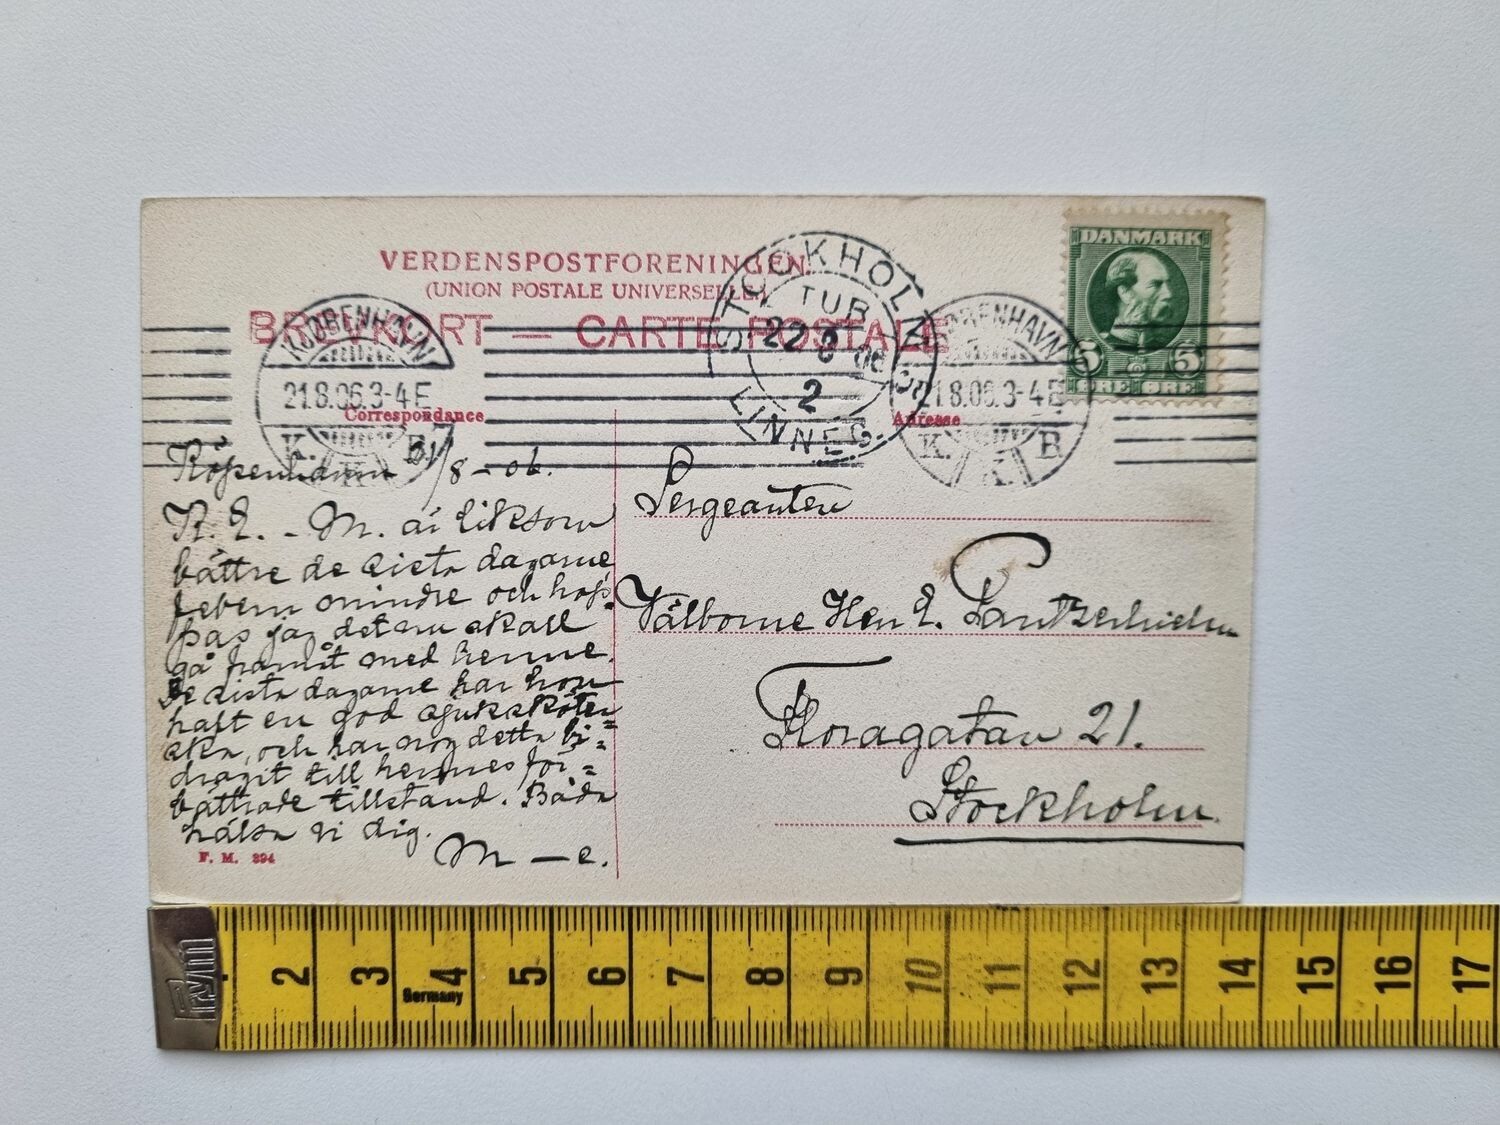 VERDENSPOSTFORENINGEN.
(UNION POSTALE UNIVERSELLE.)
BREVKORT — CARTE POSTALE
DANMARK
5 5
ØRE ØRE
KJØBENHAVN
21.8.06.3-4E
K. B.
STOCKHOLM
TUR
22 8 06
2
LINNEG.
KJØBENHAVN
21.8.06.3-4E
K. B
Correspondance
Adresse
Köpenhamn 21/8-06.
K. E. - M. är liksom
bättre de sista dagarne,
febern mindre och hop-
pas jag det nu skall
gå framåt med henne.
De sista dagarne har hon
haft en god sjuksköter-
ska, och har nog detta bi-
dragit till hennes för-
bättrade tillstånd. Båda
hälsa vi dig.
M-e.
Sergeanten
Välborne Herr E.
Floragatan 21.
Stockholm.
F. M. 394
Prym
Germany
2 3 4 5 6 7 8 9 10 11 12 13 14 15 16 17